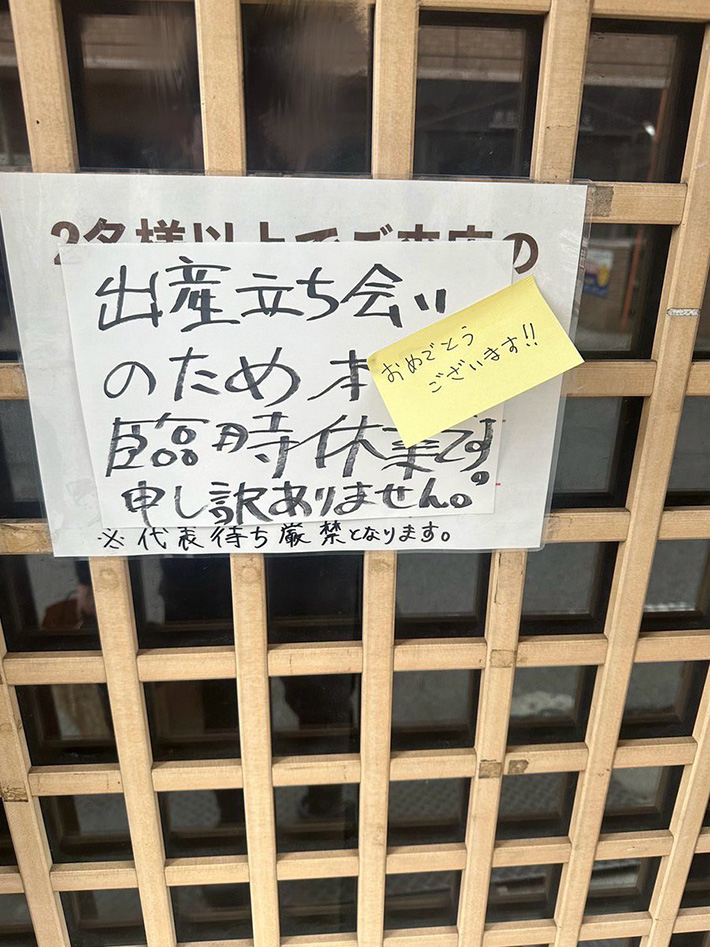 2名様以上でご来店の
出産立ち会い
のため本
臨時休業です。
申し訳ありません。
※代表待ち厳禁となります。
おめでとう
ございます!!